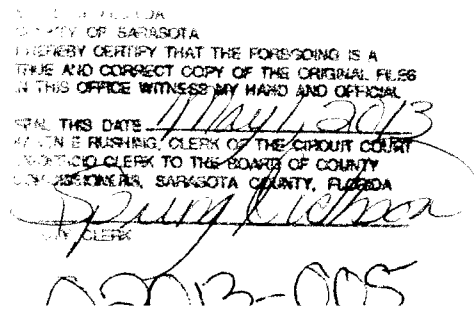 OF SARASOTA
HEREBY CERTIFY THAT THE FOREGOING IS A
TRUE AND CORRECT COPY OF THE ORIGINAL FILES
IN THIS OFFICE WITNESS MY HAND AND OFFICIAL
THIS DATE May 1, 2013
E RUSHING, CLERK OF THE CIRCUIT COURT
CLERK TO THE BOARD OF COUNTY
COMMISSIONERS, SARASOTA COUNTY, FLORIDA
CLERK
02013-005